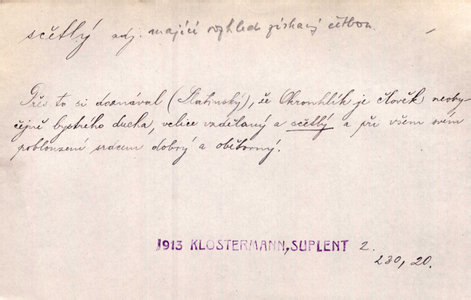 sčetlý adj. mající rozhled získaný četbou
Přes to si doznával (Slatinský), že Okrouhlík je člověk neoby
čejně bystrého ducha, velice vzdělaný a sčetlý a při všem svém
poblouzení srdcem dobrý a obětivný.
1913 KLOSTERMANN, SUPLENT 2.
230, 20.